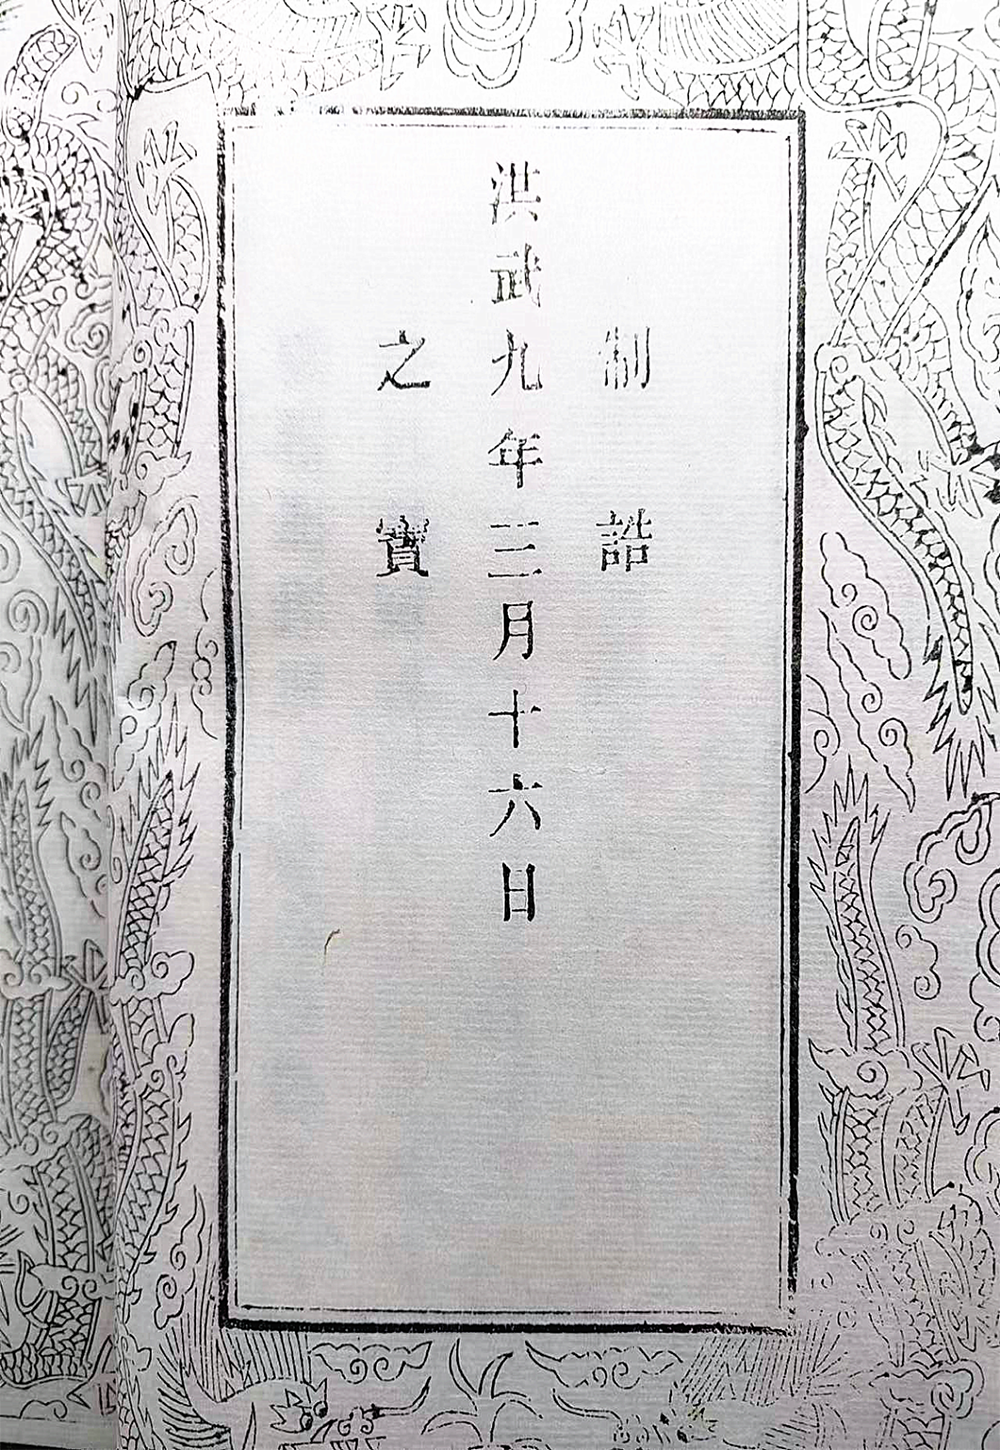 制誥
洪武九年三月十六日
之寶